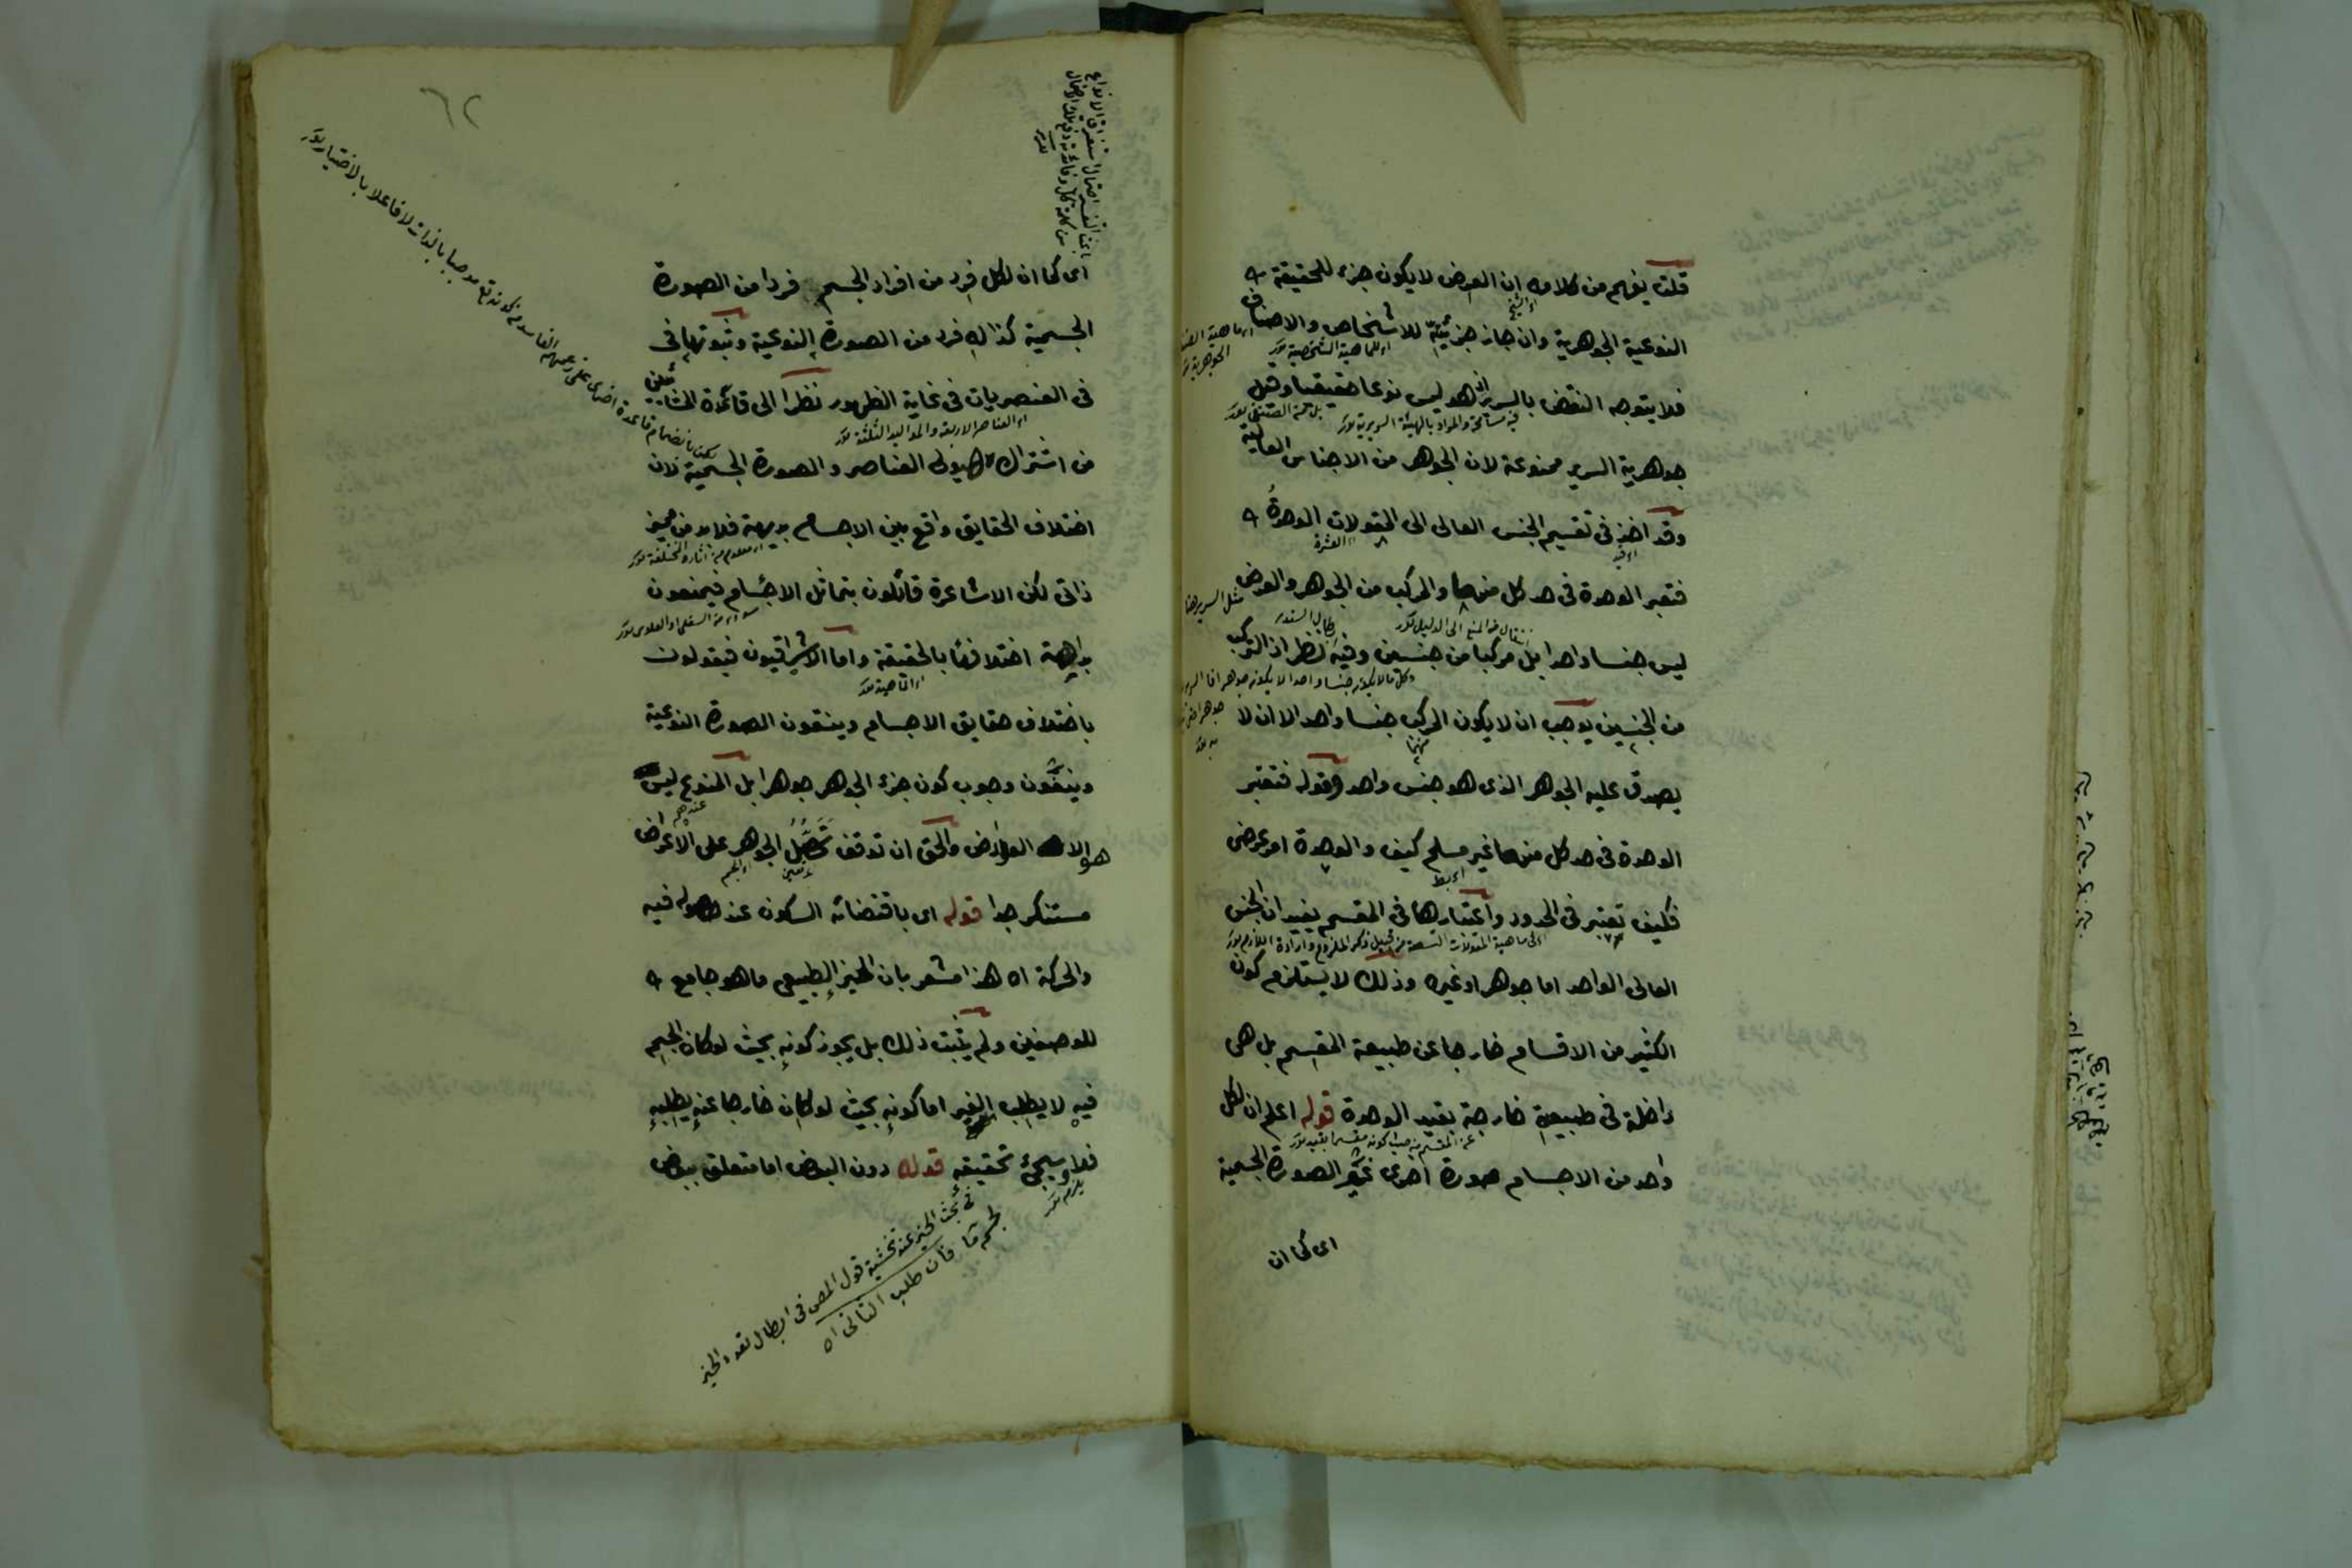 قلت يفهم من كلامه ان العرض لا يكون جزء للحقيقة
النوعية الجوهرية وان جاز جزئيته للاشخاص والاصناف
فلا يتوجه النقض بالسرير اذ هو ليس نوعا حقيقيا وقيل
جوهرية السرير ممنوعة لان الجوهر من الاجناس العالية
وقد اخذ في تقسيم الجنس العالى الى المقولات الوحدة
فتعبر الوحدة في حد كل منها والمركب من الجوهر والعرض
ليس جنسا واحدا بل مركبا من جنسين وفيه نظر اذ التركب
من الجنسين يوجب ان لا يكون المركب جنسا واحدا لا ان لا
يصدق عليه الجوهر الذى هو جنس واحد وقوله فتعتبر
الوحدة في حد كل منها غير مسلم كيف والوحدة امر عرضى
فكيف تعتبر في الحدود واعتبارها في المقسم يفيد ان الجنس
العالى الواحد اما جوهر او غيره وذلك لا يستلزم كون
الكثير من الاقسام خارجا عن طبيعة المقسم بل هى
داخلة في طبيعية خارجة بقيد الوحدة قوله اعلم ان لكل
واحد من الاجسام صورة اخرى غير الصورة الجسمية
اى كما ان
٦٢
اى كما ان لكل فرد من افراد الجسم فردا من الصورة
الجسمية كذلك فرد من الصورة النوعية وثبوتها في
في العنصريات في غاية الظهور نظرا الى قاعدة المشائين
اى العناصر الاربعة والمواليد الثلثة
من اشتراك هيولى العناصر والصورة الجسمية لان
اختلاف الحقايق واقع بين الاجسام بديهة فلا بد من مميز
ذاتى لكن الاشاعرة قائلون بتماثل الاجسام فيمنعون
بداهة اختلافها بالحقيقة واما الاشراقيون فيقولون
باختلاف حقايق الاجسام وينفون الصورة النوعية
وينفون وجوب كون جزء الجوهر جوهرا بل المنوع ليس
هو الا العوارض والحق ان توقف تحصل الجوهر على الاعراض
مستنكر جدا قوله اى باقتضائه السكون عند حصوله فيه
والحركة اه هذا مشعر بان الحيز الطبيعى ما هو جامع
للوصفين ولم يثبت ذلك بل يجوز كونه بحيث لو كان الجسم
فيه لا يطلب الغير اما كونه بحيث لو كان خارجا عنه يطلبه
فلا وسيجئ تحقيقه قوله دون البعض اما متعلق ببعض
في بحث الحيز عند تحشية قول المص في ابطال تعدد الحيز
لجسم ما فان طلب الثانى اه